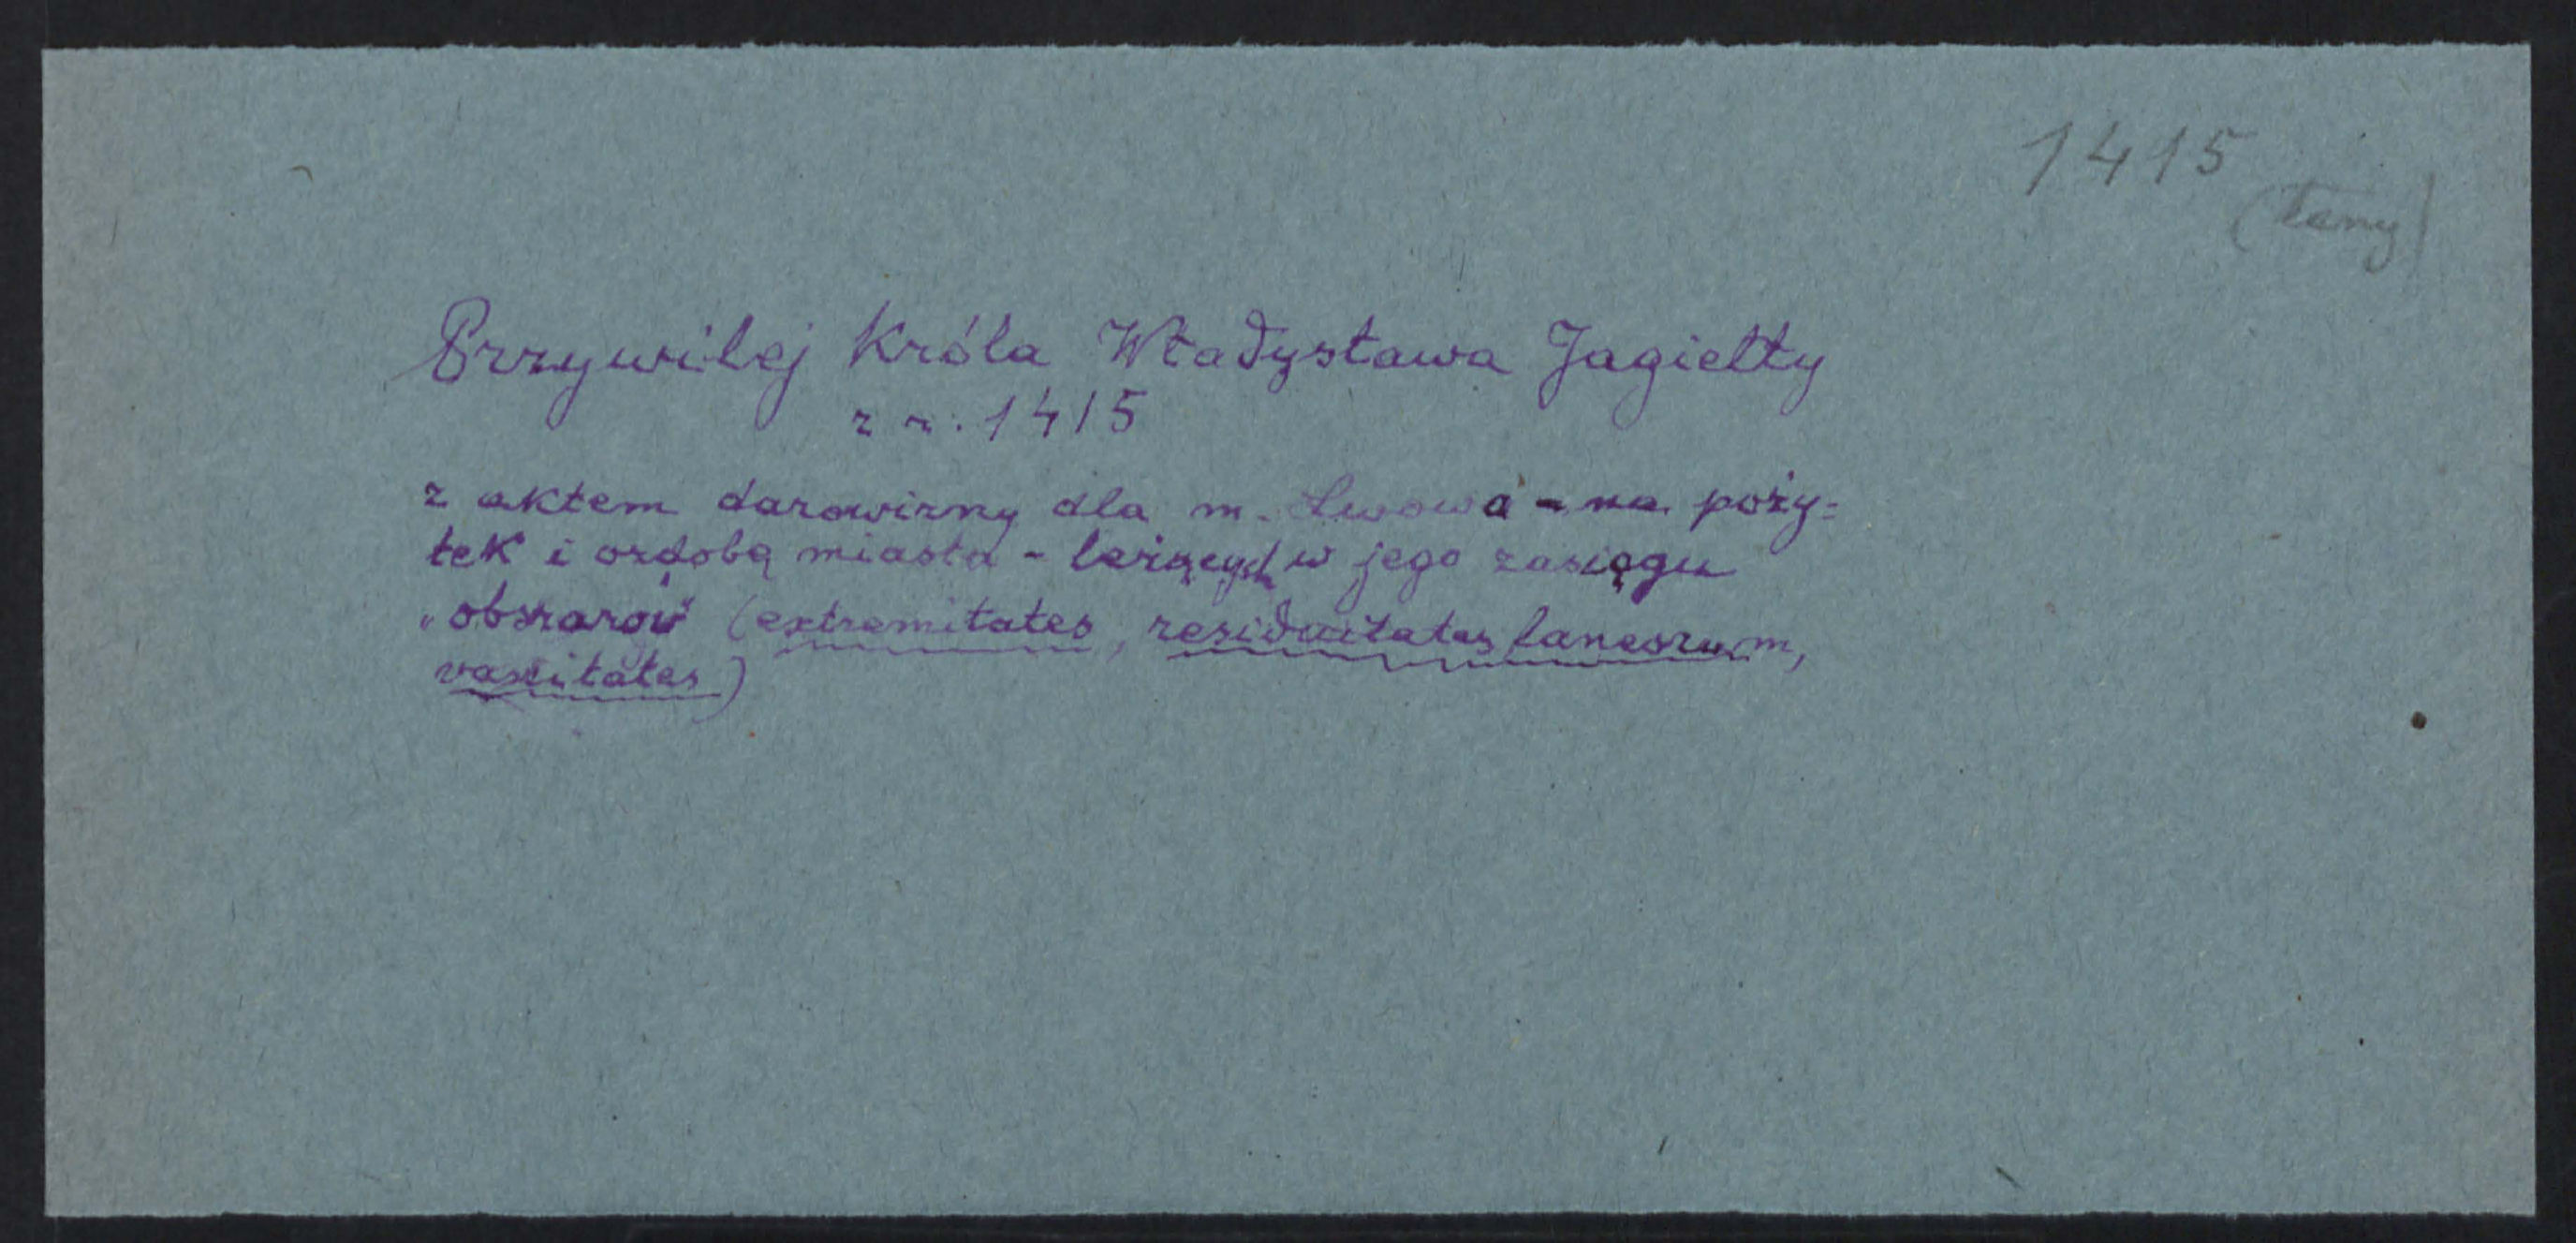 1415
(Łany)
Przywilej Króla Władysława Jagiełły
z r. 1415
z aktem darowizny dla m. Lwowa - na poży=
tek i ozdobę miasta - leżących w jego zasięgu
„obszarów" (extremitates, residuitates laneorum,
vastitates)